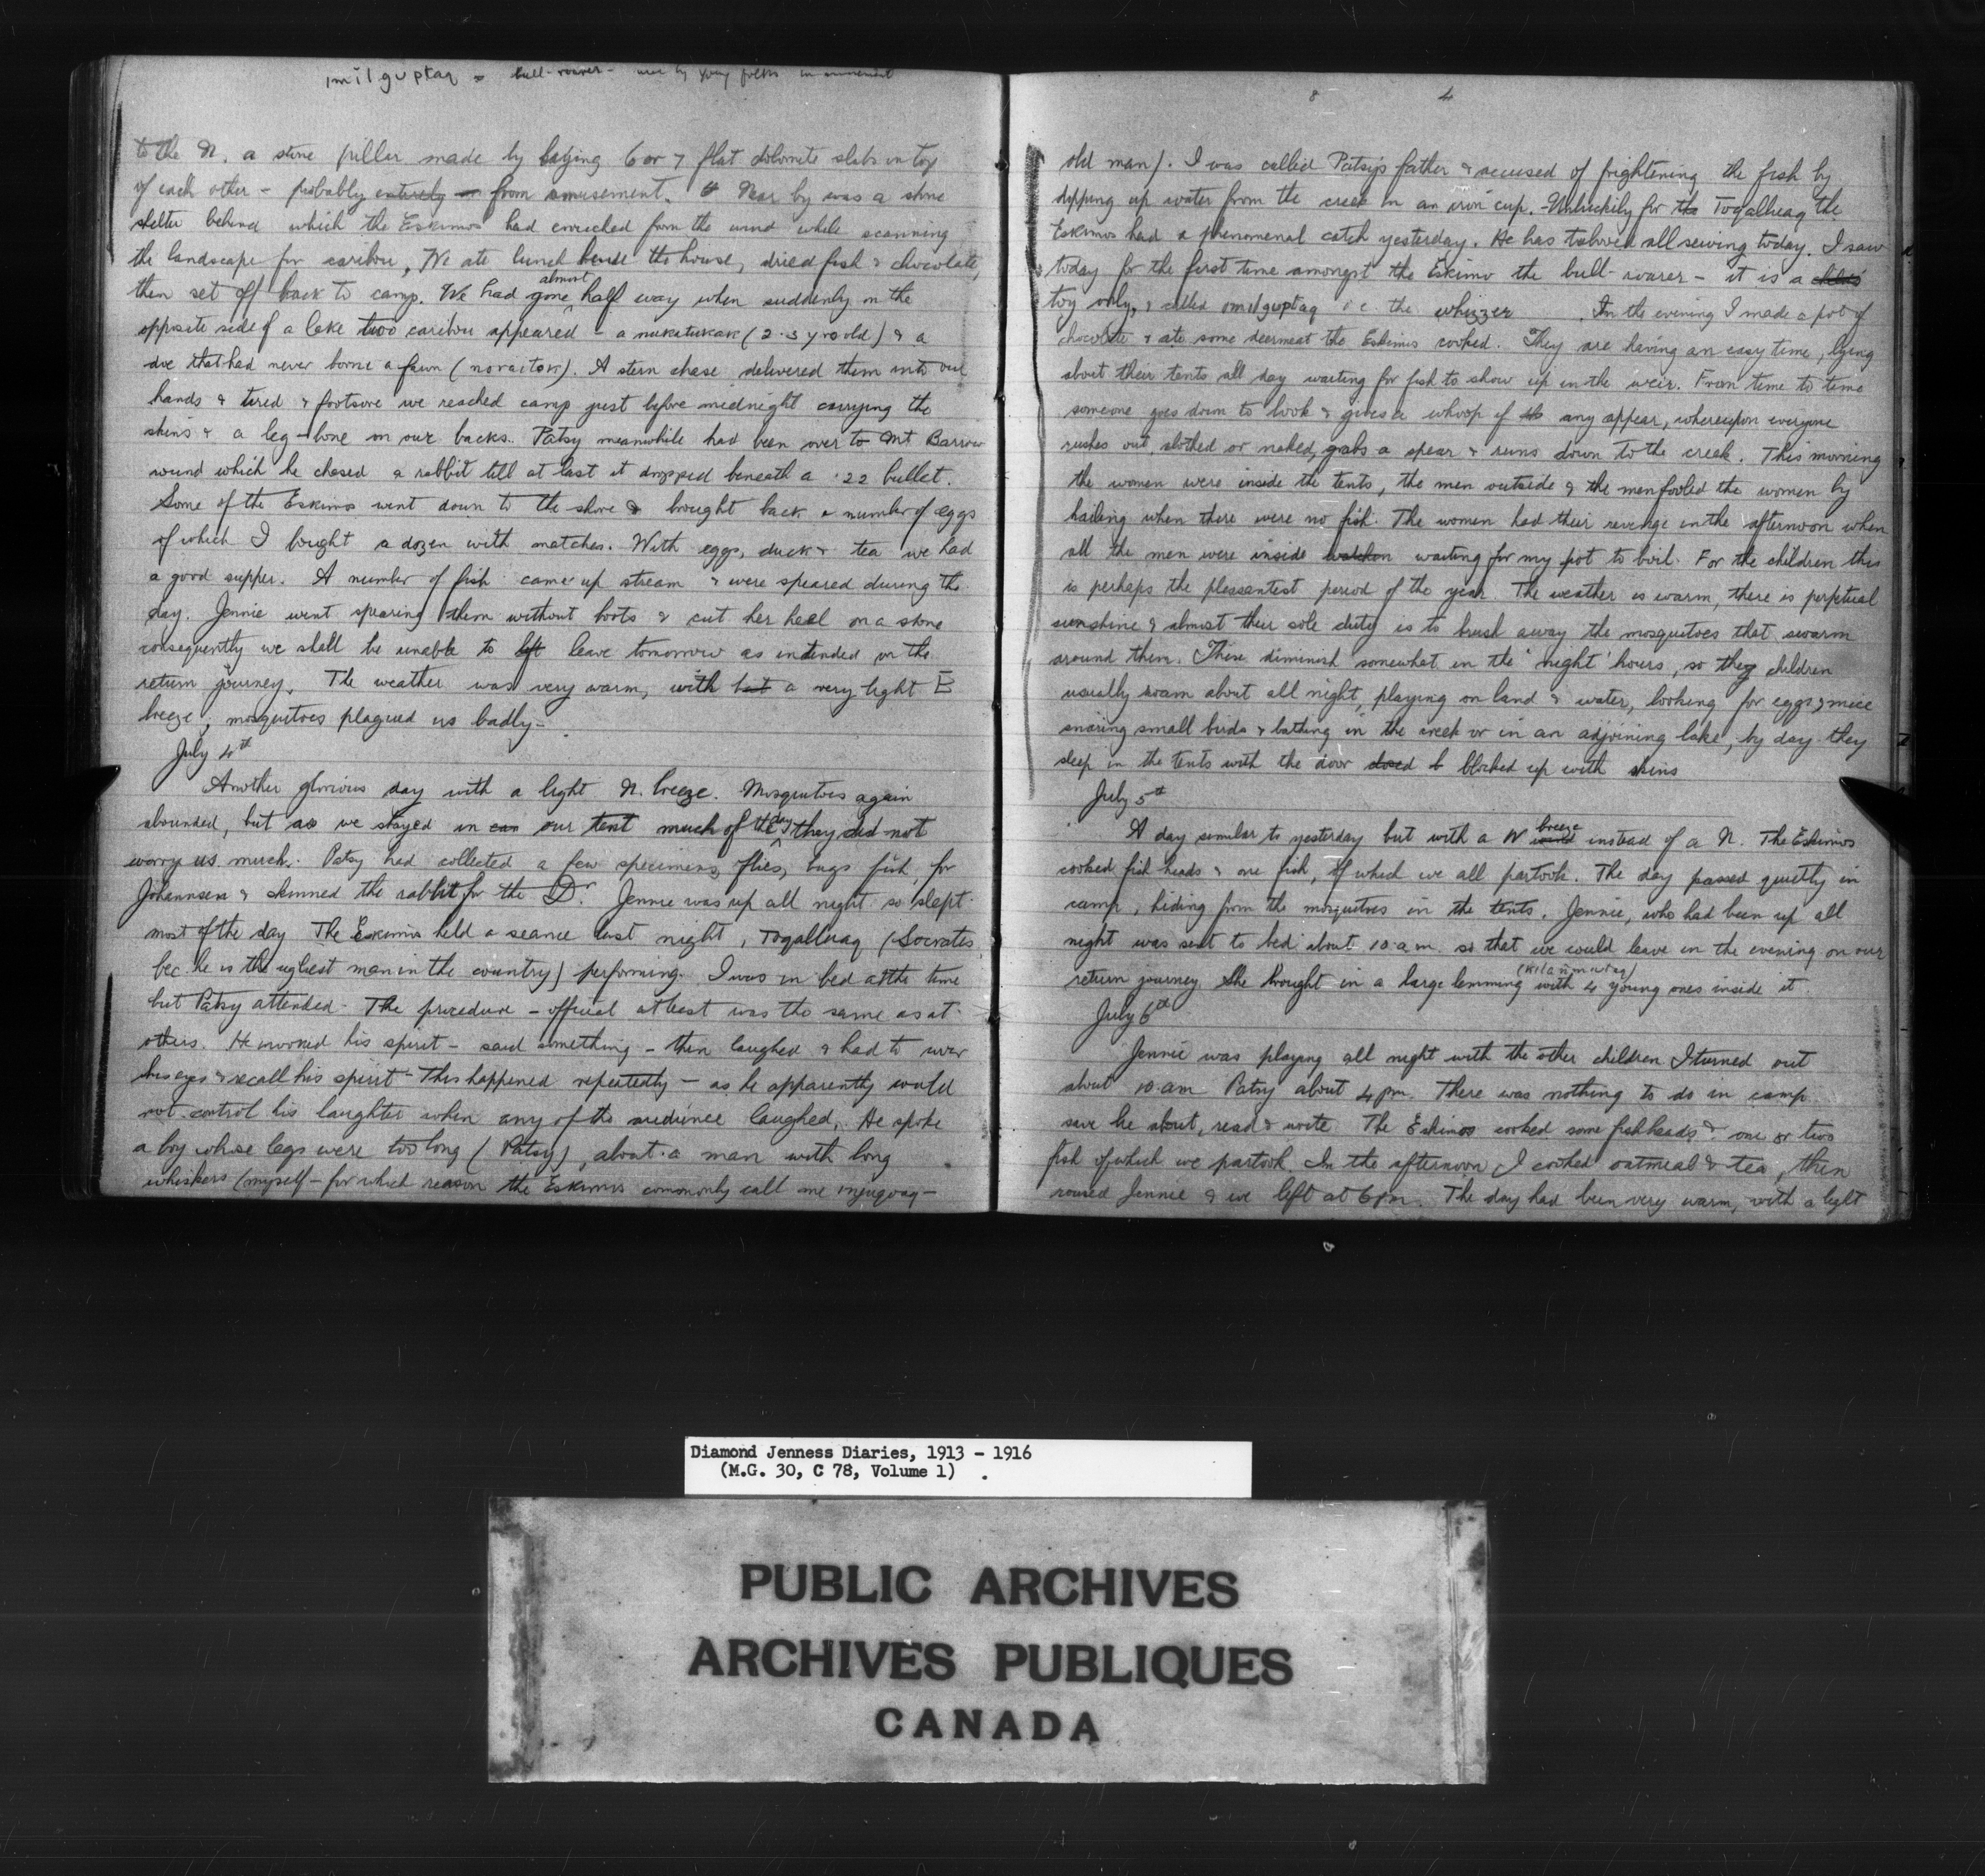 imilguptaq = bull-roarer - use by young folks in amusement
to the N. a stone pillar made by laying 6 or 7 flat dolomite slabs on top
of each other - probably entirely from amusement. Near by was a stone
shelter behind which the Eskimos had crouched from the wind while scanning
the landscape for caribou. We ate lunch beside the house, dried fish & chocolate,
then set off back to camp. We had almost gone half way when suddenly on the
opposite side of a lake two caribou appeared - a nukatukak (2-3 yrs old) & a
doe that had never borne a fawn (noraitok). A stern chase delivered them into our
hands & tired & footsore we reached camp just before midnight carrying the
skins & a leg-bone on our backs. Patsy meanwhile had been over to Mt Barrow
round which he chased a rabbit till at last it dropped beneath a .22 bullet.
Some of the Eskimos went down to the shore & brought back a number of eggs
of which I bought a dozen with matches. With eggs, duck & tea we had
a good supper. A number of fish came up stream & were speared during the
day. Jennie went spearing them without boots & cut her heel on a stone
consequently we shall be unable to left leave tomorrow as intended on the
return journey. The weather was very warm, with but a very light E
breeze; mosquitoes plagued us badly-
July 4th
Another glorious day with a light N. breeze. Mosquitoes again
abounded, but as we stayed in our tent much of the day they did not
worry us much. Patsy had collected a few specimens, flies, bugs fish, for
Johannsen & skinned the rabbit for the Dr. Jennie was up all night so slept
most of the day The Eskimos held a seance last night, Toqalluaq (Socrates
bec. he is the ugliest man in the country) performing. I was in bed at the time
but Patsy attended- The procedure - official at least was the same as at
others. He invoked his spirit - said something - then laughed & had to cover
his eyes & recall his spirit - This happened repeatedly - as he apparently could
not control his laughter when any of the audience laughed. He spoke
a boy whose legs were too long (Patsy), about a man with long
whiskers (myself - for which reason the Eskimos commonly call me injuqoaq -
8 4
old man). I was called Patsy's father & accused of frightening the fish by
dipping up water from the creek in an iron cup. Unluckily for Toqalluaq the
Eskimos had a phenomenal catch yesterday. He has tabooed all sewing today. I saw
today for the first time amongst the Eskimo the bull-roarer - it is a
toy only, & called imilguptaq i.e. the whizzer . In the evening I made a pot of
chocolate & ate some deermeat the Eskimos cooked. They are having an easy time, lying
about their tents all day waiting for fish to show up in the weir. From time to time
someone goes down to look & gives a whoop if any appear, whereupon everyone
rushes out, clothed or naked, grabs a spear & runs down to the creek. This morning
the women were inside the tents, the men outside & the men fooled the women by
hailing when there were no fish. The women had their revenge in the afternoon when
all the men were inside waiting for my pot to boil. For the children this
is perhaps the pleasantest period of the year. The weather is warm, there is perpetual
sunshine & almost their sole duty is to brush away the mosquitoes that swarm
around them. These diminish somewhat in the 'night' hours, so they children
usually roam about all night, playing on land & water, looking for eggs & mice
snaring small birds & bathing in the creek or in an adjoining lake; by day they
sleep in the tents with the door closed b blocked up with skins
July 5th
A day similar to yesterday but with a W wind breeze instead of a N. The Eskimos
cooked fish heads & one fish, of which we all partook. The day passed quietly in
camp, hiding from the mosquitoes in the tents. Jennie, who had been up all
night was sent to bed about 10 a.m. so that we could leave in the evening on our
return journey. She brought in a large lemming (kilanmiutaq) with 4 young ones inside it.
July 6th
Jennie was playing all night with the other children I turned out
about 10 am Patsy about 4 pm. There was nothing to do in camp
save lie about, read & write The Eskimos cooked some fish heads & one or two
fish of which we partook. In the afternoon I cooked oatmeal & tea, then
roused Jennie & we left at 6 pm. The day had been very warm, with a light
Diamond Jenness Diaries, 1913 - 1916
(M.G. 30, C 78, Volume 1) .
PUBLIC ARCHIVES
ARCHIVES PUBLIQUES
CANADA